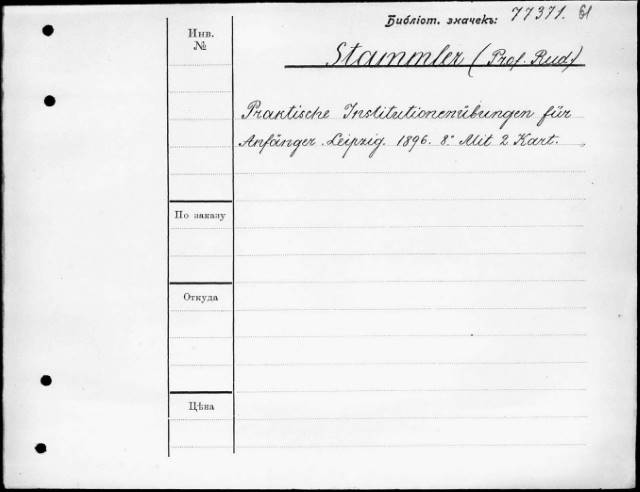 Библіот. значекъ: 77371.
Инв. №
Stammler (Prof. Rud)
Praktische Institutionenübungen für
Anfänger. Leipzig. 1896. 8° Mit 2 Kart.
По заказу
Откуда
Цѣна